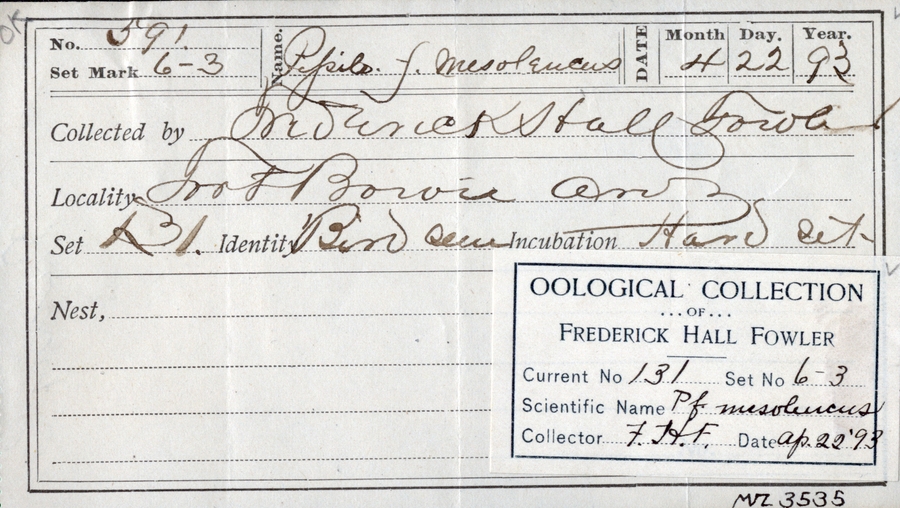 OK
No. 591. Name. Pipilo. f. mesoleucus DATE Month Day. Year.
Set Mark 6-3 4 22 93
Collected by Frederick Hall Fowler
Locality Fort Bowie Ariz
Set 131. Identity Bird seen Incubation Hard set
Nest,
OOLOGICAL COLLECTION
...OF...
FREDERICK HALL FOWLER
Current No 131 Set No 6-3
Scientific Name P f. mesoleucus
Collector F. H. F. Date Ap. 22 '93
MVZ 3535